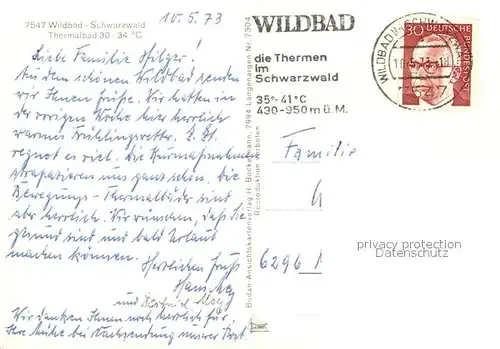 7547 Wildbad - Schwarzwald
Thermalbad 30 - 34 °C
10.5.73
Liebe Familie
Aus dem schönen Wildbad senden
wir Ihnen Grüße. Wir hatten in
der vorigen Woche hier herrlich
warmes Frühlingswetter. Z. Zt.
regnet es viel. Die Kurmaßnahmen
strapazieren uns ganz schön. Die
Bewegungs-Thermalbäder sind
aber herrlich. Wir wünschen, daß Sie
gesund sind und bald Urlaub
machen können.
Herzlichen Gruß
Hans
und
Wir danken Ihnen noch herzlich für
Ihre Mühe bei Nachsendung unserer Post.
Bodan-Ansichtskartenverlag H. Beckelmann, 7994 Langenargen Nr. 7304
Reproduktion verboten
WILDBAD
die Thermen
im
Schwarzwald
35°-41°C
430-950m ü.M.
WILDBAD
10.5.73
7547
30
DEUTSCHE
BUNDESPOST
Familie
6296
privacy protection
ansichtskartenhandel.com